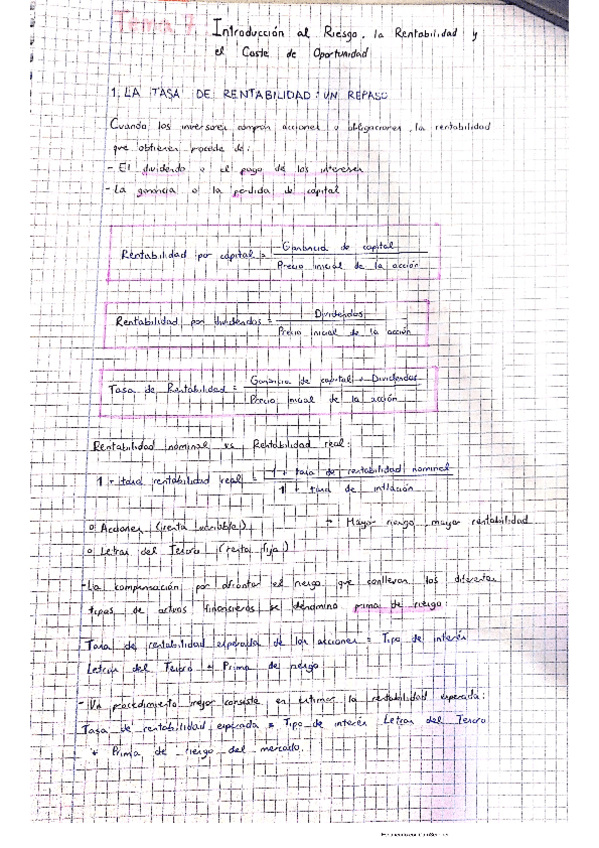 Tema 7: Introducción al Riesgo, la Rentabilidad y
el Coste de Oportunidad
1. LA TASA DE RENTABILIDAD: UN REPASO
Cuando los inversores compran acciones u obligaciones, la rentabilidad
que obtienen procede de:
- El dividendo o el pago de los intereses
- La ganancia o la pérdida de capital
Rentabilidad por capital = Ganancia de capital
Precio inicial de la acción
Rentabilidad por dividendos = Dividendos
Precio inicial de la acción
Tasa de Rentabilidad = Ganancia de capital + Dividendos
Precio inicial de la acción
Rentabilidad nominal vs Rentabilidad real:
1 + tasa rentabilidad real = 1 + tasa de rentabilidad nominal
1 + tasa de inflación
o Acciones (renta variable) → Mayor riesgo, mayor rentabilidad
o Letras del Tesoro (renta fija)
- La compensación por afrontar el riesgo que conllevan los diferentes
tipos de activos financieros se denomina prima de riesgo:
Tasa de rentabilidad esperada de las acciones = Tipo de interés
Letras del Tesoro + Prima de riesgo
- Un procedimiento mejor consiste en estimar la rentabilidad esperada:
Tasa de rentabilidad esperada = Tipo de interés Letras del Tesoro
+ Prima de riesgo del mercado.